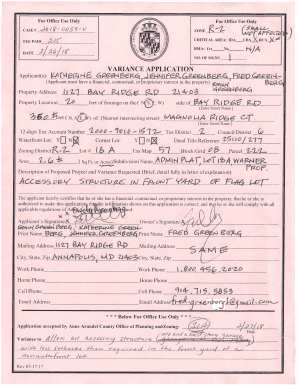 For Office Use Only
CASE # 2018-0059-V
FEE PAID
DATE 2/26/18
For Office Use Only
ZONE R-2
CRITICAL AREA: IDA LDA RCA
BMA: Yes No N/A
NO. OF SIGNS 1
VARIANCE APPLICATION
Applicant(s): KATHERINE GREENBERG, JENNIFER GREENBERG, FRED GREEN-
BERG
(Applicant must have a financial, contractual, or proprietary interest in the property)
GREENBERG
Property Address: 1127 BAY RIDGE RD 21403
Property Location: 20 feet of frontage on the (N, S, E, W) side of BAY RIDGE RD
(Enter Street Name)
350 feet (N, S, E, W) of (Nearest intersecting street) MAGNOLIA RIDGE CT
(Enter Street Name)
12-digit Tax Account Number 2000-9018-1572 Tax District 2 Council District 6
Waterfront Lot: Y N Corner Lot: Y N Deed Title Reference
Zoning District R-2 Lot # 1A Tax Map 57 Block/Grid 08 Parcel 222
Area 2.6 ± (Sq Ft or Acres) Subdivision Name ADMIN PLAT, LOT 1BA WARNER
PROP.
Description of Proposed Project and Variance Requested (Brief, detail fully in letter of explanation)
ACCESSORY STRUCTURE IN FRONT YARD OF FLAG LOT
The applicant hereby certifies that he or she has a financial, contractual, or proprietary interest in the property; that he or she is
authorized to make this application; that the information shown on this application is correct; and that he or she will comply with all
applicable regulations of
Applicant's Signature Owner's Signature
Print Name BERG, JENNIFER GREENBERG Print Name FRED GREENBERG
Mailing Address 1127 BAY RIDGE RD Mailing Address SAME
City, State, Zip ANNAPOLIS, MD 21403 City, State, Zip
Work Phone Work Phone 1.800.456.2020
Home Phone Home Phone
Cell Phone Cell Phone 914.715.5853
Email Address Email Address
*** Below For Office Use Only ***
Application accepted by Anne Arundel County Office of Planning and Zoning: 2/27/18
Initials Date
Variance to allow an accessory structure
with less setbacks than required in the front yard of a
nonwaterfront lot